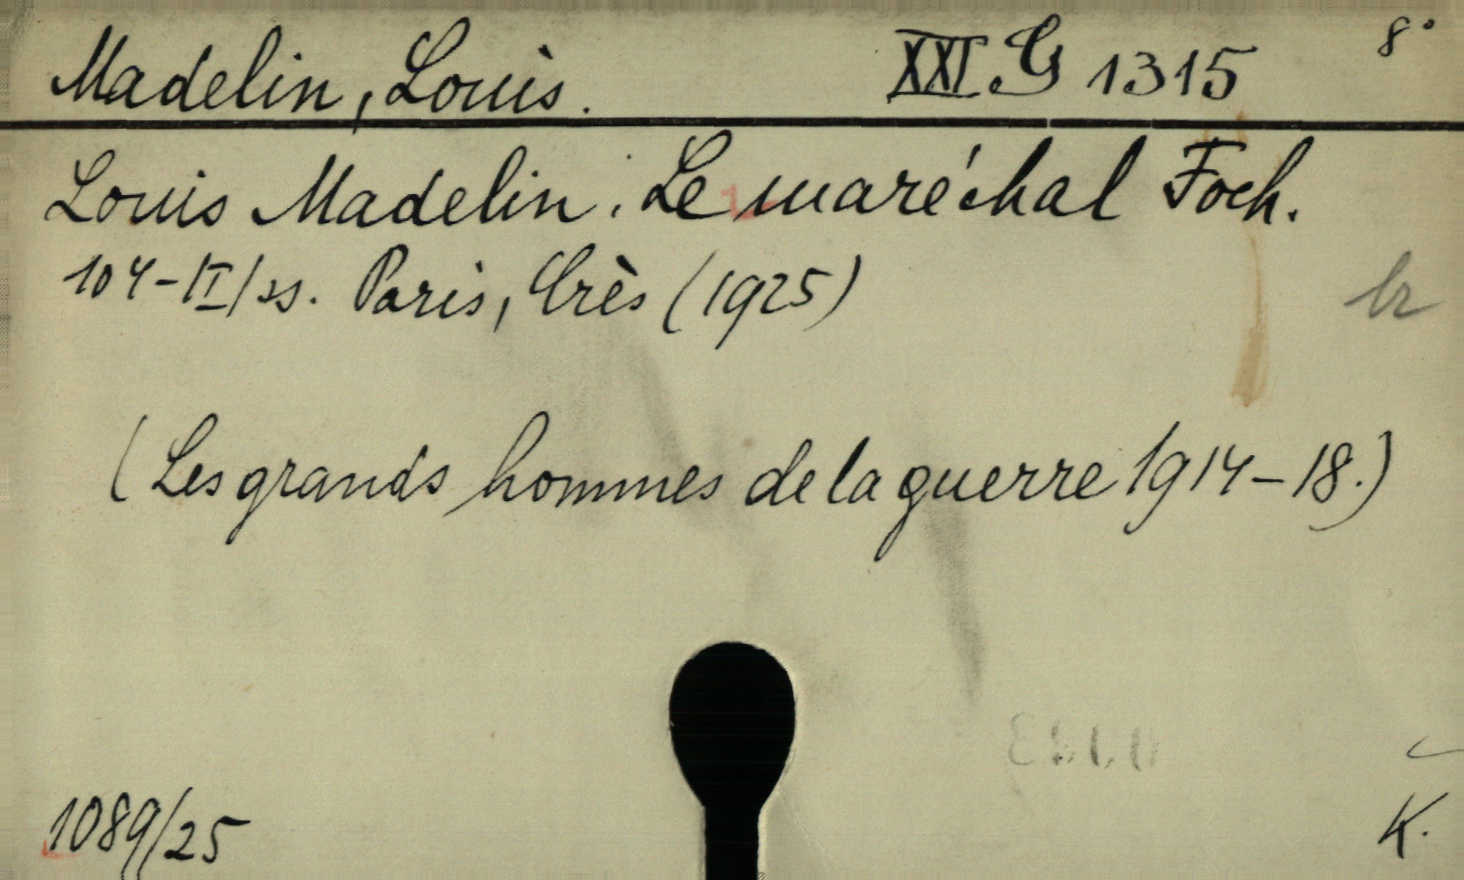 Madelin, Louis. XXI G 1315 8°
Louis Madelin. Le maréchal Foch.
104-II/ss. Paris, Crès (1925)
br
(Les grands hommes de la guerre 1914-18.)
1089/25
K.